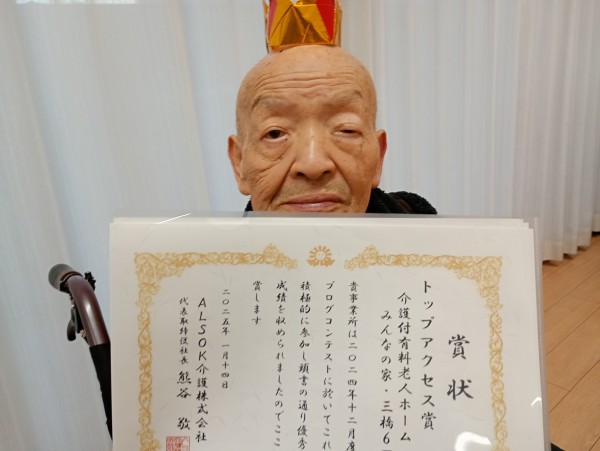 賞状
トップアクセス賞
介護付有料老人ホーム
みんなの家・三橋6
貴事業所は二〇二四年十二月度
ブログコンテストに於いてこれ
積極的に参加し頭書の通り優秀
成績を収められましたのでここ
賞します
二〇二五年 一月十四日
ALSOK介護株式会社
代表取締役社長 熊谷 敬